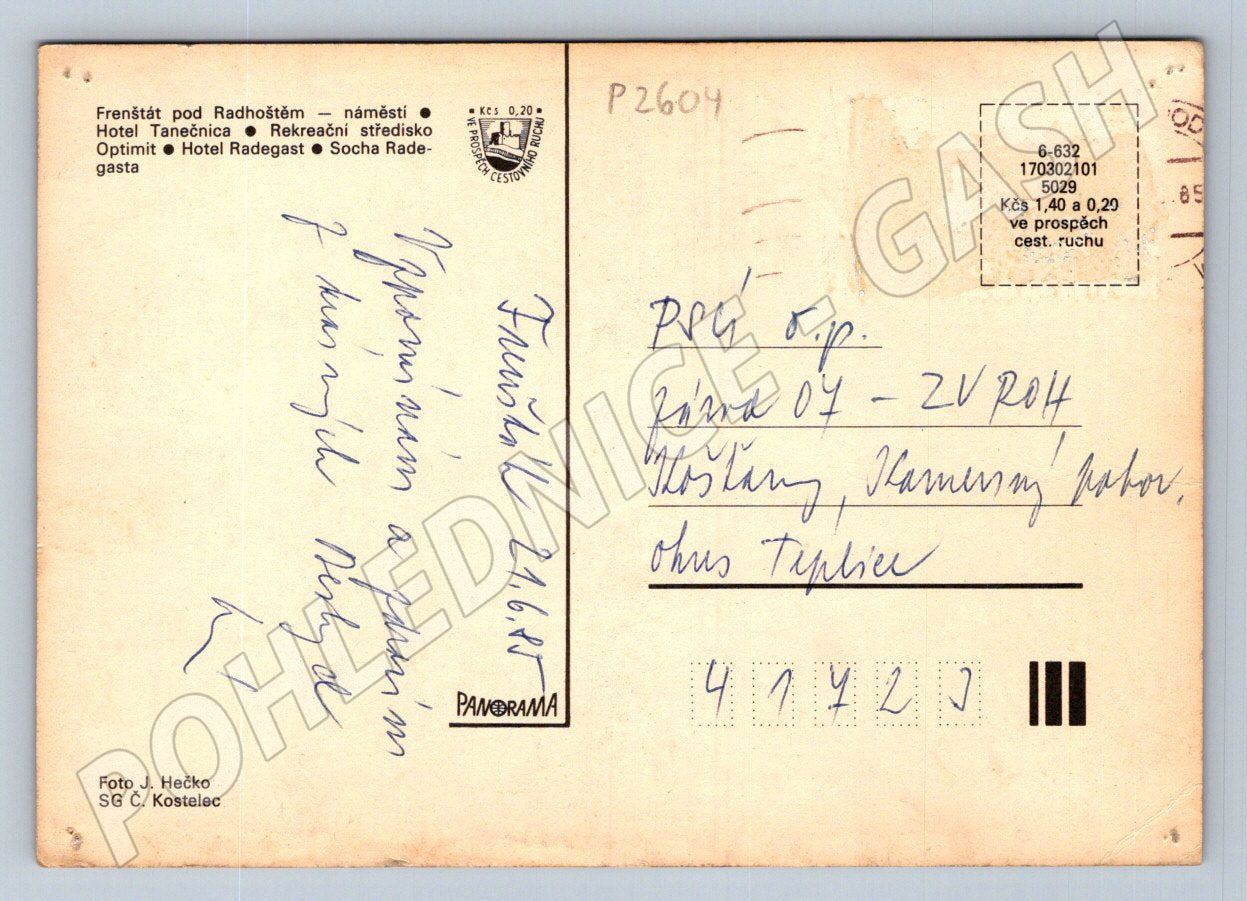 Frenštát pod Radhoštěm — náměstí ●
Hotel Tanečnica ● Rekreační středisko
Optimit ● Hotel Radegast ● Socha Rade-
gasta
Kčs 0,20
VE PROSPĚCH CESTOVNÍHO RUCHU
P2604
6-632
170302101
5029
Kčs 1,40 a 0,20
ve prospěch
cest. ruchu
85
Frenštát 21.6.85
Vzpomínám a zdravím
z krásných Beskyd
o.p.
závod 07 – ZV ROH
Košťany, Kamenný
okres Teplice
4 1 7 2 3
PANORAMA
Foto J. Hečko
SG Č. Kostelec
POHLEDNICE - GASH